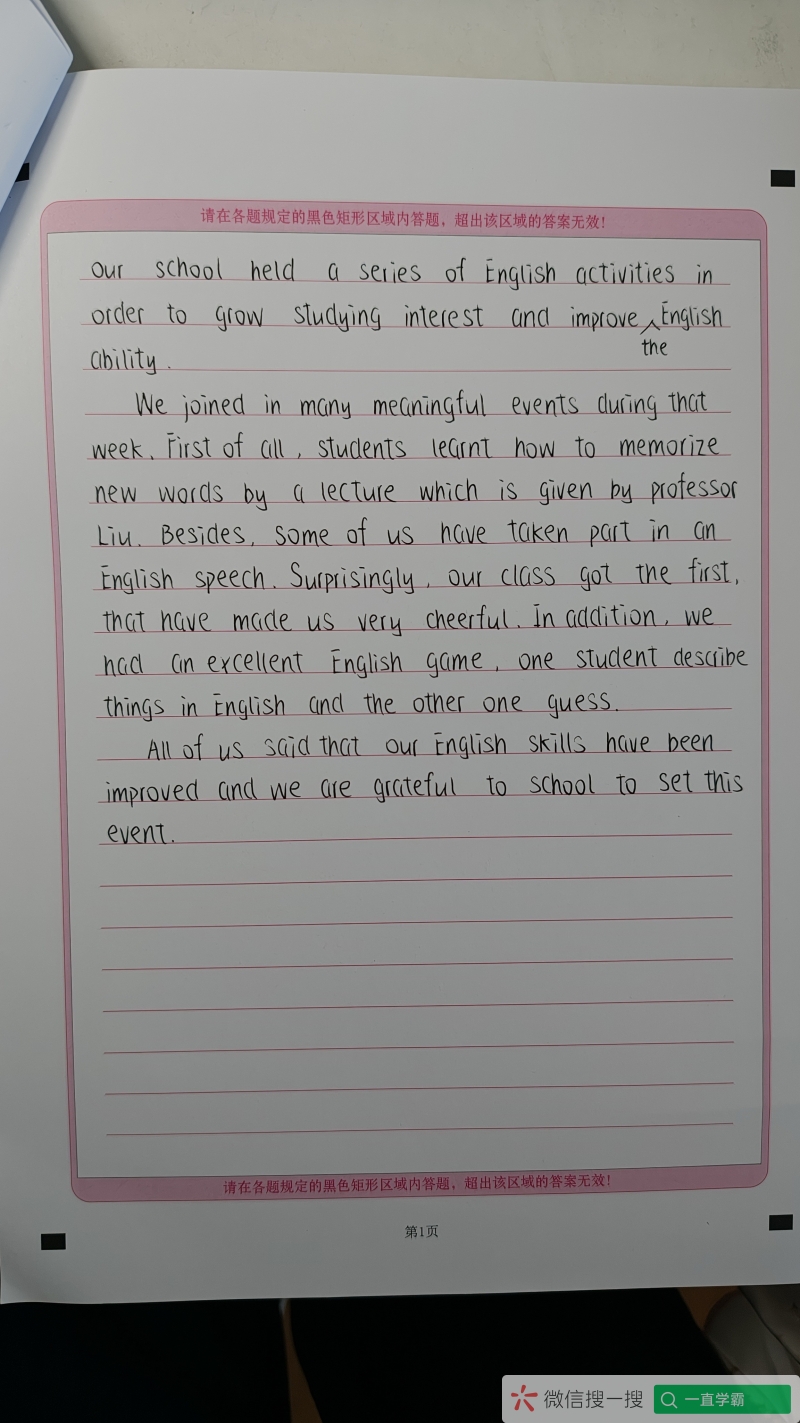 请在各题规定的黑色矩形区域内答题，超出该区域的答案无效！
our school held a series of English activities in
order to grow studying interest and improve ^ English
the
ability.
We joined in many meaningful events during that
week. First of all, students learnt how to memorize
new words by a lecture which is given by professor
Liu. Besides, some of us have taken part in an
English speech. Surprisingly, our class got the first,
that have made us very cheerful. In addition, we
had an excellent English game, one student describe
things in English and the other one guess.
All of us said that our English skills have been
improved and we are grateful to school to set this
event.
请在各题规定的黑色矩形区域内答题，超出该区域的答案无效！
第1页
微信搜一搜
一直学霸